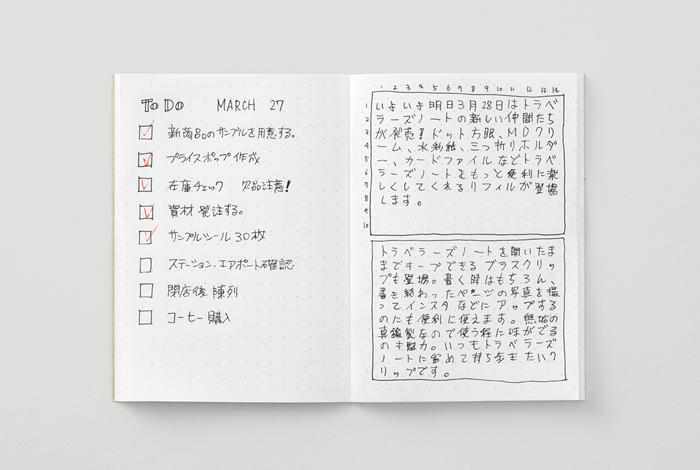 To Do MARCH 27
新商品のサンプルを用意する。
プライスポップ作成
在庫チェック 欠品注意!
資材 発注する。
サンプルシール 30枚
ステーション.エアポート確認
閉店後 陳列
コーヒー購入
1 2 3 4 5 6 7 8 9 10 11 12 13 14
1 いよいよ明日3月28日はトラベ
2 ラーズノートの新しい仲間たち
3 が発売!ドット方眼、MDクリ
4 ーム、水彩紙、三つ折りホルダ
5 ー、カードファイルなどトラベ
6 ラーズノートをもっと便利に楽
7 しくしてくれるリフィルが登場
8 します。
9
10
トラベラーズノートを開いたま
までキープできるブラスクリッ
プも登場。書く時はもちろん、
書き終わったページの写真を撮
ってインスタなどにアップする
のにも便利に使えます。無垢の
真鍮製なので使う程に味がでる
のも魅力。いつもトラベラーズ
ノートに留めて
たいク
リップです。